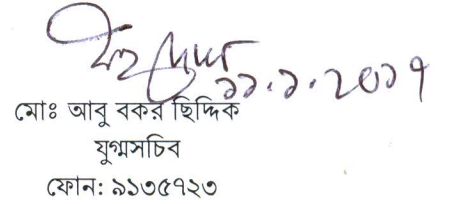 ১১.১.২০১৭
মোঃ আবু বকর ছিদ্দিক
যুগ্মসচিব
ফোন: ৯১৩৫৭২৩